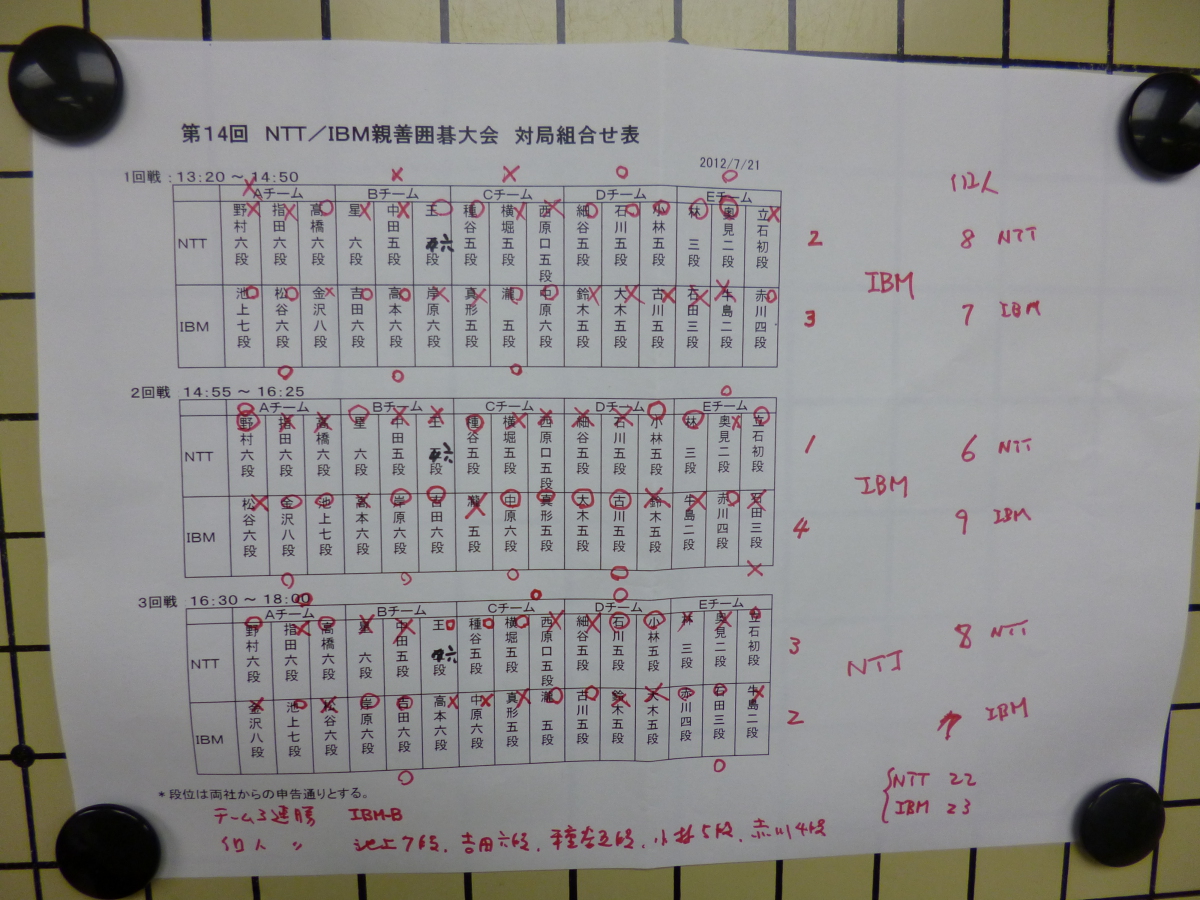 第14回 NTT／IBM親善囲碁大会 対局組合せ表
2012/7/21
1回戦：13:20 ～ 14:50
× × × ○ ○
Aチーム Bチーム Cチーム Dチーム Eチーム
個人
NTT 野村六段× 指田六段× 高橋六段○ 星 六段× 中田五段× 王 六段○ 種谷五段○ 横堀五段× 西原口五段× 細谷五段○ 石川五段○ 小林五段○ 林 三段○ 奥見二段○ 立石初段× 2 8 NTT
IBM
IBM 池上七段○ 松谷六段○ 金沢八段× 吉田六段○ 高本六段○ 岸原六段× 真形五段× 瀧 五段○ 中原六段○ 鈴木五段× 大木五段× 古川五段× 石田三段× 牛島二段× 赤川四段○ 3 7 IBM
○ ○ ○
2回戦 14:55 ～ 16:25
○
Aチーム Bチーム Cチーム Dチーム Eチーム
NTT 野村六段○ 指田六段× 高橋六段× 星 六段○ 中田五段× 王 六段× 種谷五段○ 横堀五段× 西原口五段× 細谷五段× 石川五段× 小林五段○ 林 三段○ 奥見二段× 立石初段○ 1 6 NTT
IBM
IBM 松谷六段× 金沢八段○ 池上七段○ 高本六段× 岸原六段○ 吉田六段○ 瀧 五段× 中原六段○ 真形五段○ 大木五段○ 古川五段○ 鈴木五段× 牛島二段× 赤川四段○ 石田三段× 4 9 IBM
○ ○ ○ ○ ×
3回戦 16:30 ～ 18:00
○ ○ ○
Aチーム Bチーム Cチーム Dチーム Eチーム
NTT 野村六段○ 指田六段× 高橋六段○ 星 六段× 中田五段× 王 六段○ 種谷五段○ 横堀五段○ 西原口五段× 細谷五段× 石川五段○ 小林五段○ 林 三段× 奥見二段× 立石初段○ 3 8 NTT
NTT
IBM 金沢八段× 池上七段○ 松谷六段× 岸原六段○ 吉田六段○ 高本六段× 中原六段× 真形五段× 瀧 五段○ 古川五段○ 鈴木五段× 大木五段× 赤川四段○ 石田三段○ 牛島二段× 2 7 IBM
○ ○
＊段位は両社からの申告通りとする。
NTT 22
IBM 23
チーム3連勝 IBM-B
個人 〃 池上7段、吉田六段、種谷五段、小林5段、赤川4段